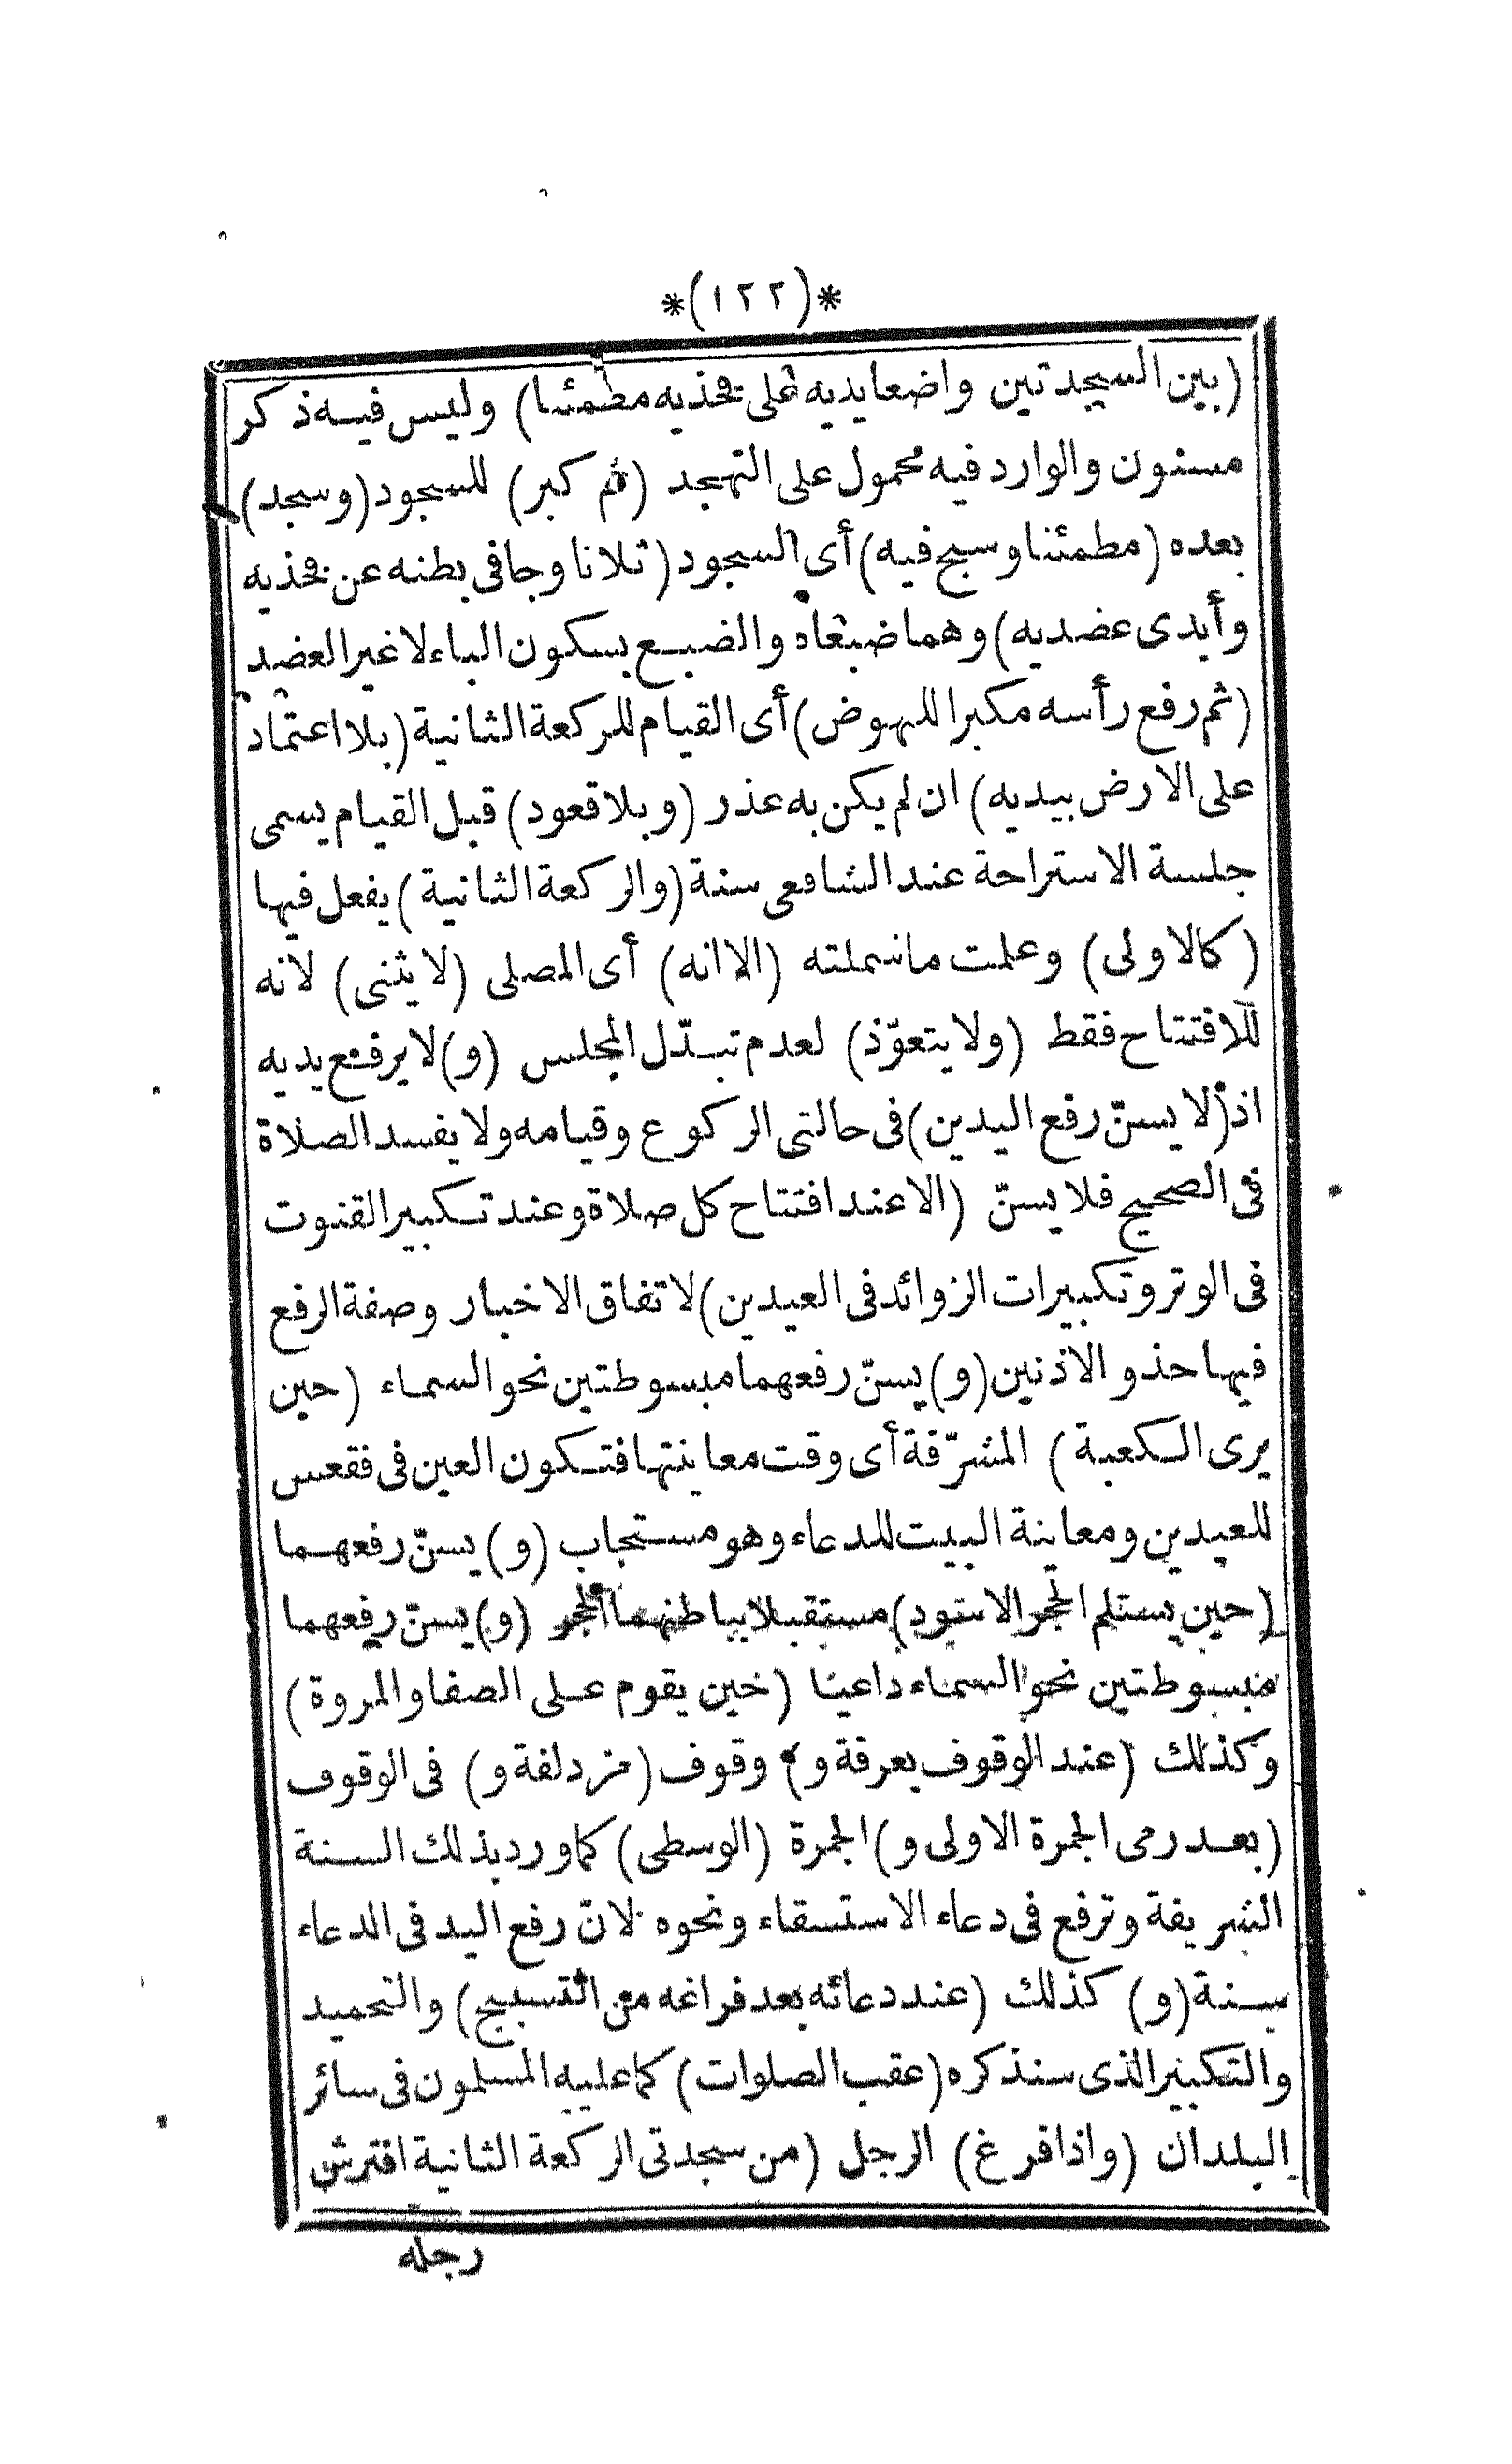 *(١٢٢)*
(بين السجدتين واضعا يديه على فخذيه مطمئنا) وليس فيه ذكر
مسنون والوارد فيه محمول على التهجد (ثم كبر) للسجود (وسجد)
بعده (مطمئنا وسبح فيه) أى السجود (ثلاثا وجافى بطنه عن فخذيه
وأبدى عضديه) وهما ضبعاه والضبع بسكون الباء لا غير العضد
(ثم رفع رأسه مكبرا للنهوض) أى القيام للركعة الثانية (بلا اعتماد
على الارض بيديه) ان لم يكن به عذر (وبلا قعود) قبل القيام يسمى
جلسة الاستراحة عند الشافعى سنة (والركعة الثانية) يفعل فيها
(كالاولى) وعلمت ما شملته (الا انه) أى المصلى (لا يثنى) لانه
للافتتاح فقط (ولا يتعوّذ) لعدم تبدّل المجلس (و) لا يرفع يديه
اذ (لا يسنّ رفع اليدين) فى حالتى الركوع وقيامه ولا يفسد الصلاة
فى الصحيح فلا يسنّ (الا عند افتتاح كل صلاة وعند تكبير القنوت
فى الوتر وتكبيرات الزوائد فى العيدين) لاتفاق الاخبار وصفة الرفع
فيها حذو الاذنين (و) يسنّ رفعهما مبسوطتين نحو السماء (حين
يرى الكعبة) المشرّفة أى وقت معاينتها فتكون العين فى فقعس
للعيدين ومعاينة البيت للدعاء وهو مستجاب (و) يسنّ رفعهما
(حين يستلم الحجر الاسود) مستقبلا بباطنهما الحجر (و) يسنّ رفعهما
مبسوطتين نحو السماء داعيا (حين يقوم على الصفا والمروة)
وكذلك (عند الوقوف بعرفة و) وقوف (مزدلفة و) فى الوقوف
(بعد رمى الجمرة الاولى و) الجمرة (الوسطى) كما ورد بذلك السنة
الشريفة وترفع فى دعاء الاستسقاء ونحوه لانّ رفع اليد فى الدعاء
سنة (و) كذلك (عند دعائه بعد فراغه من التسبيح) والتحميد
والتكبير الذى سنذكره (عقب الصلوات) كما عليه المسلمون فى سائر
البلدان (واذا فرغ) الرجل (من سجدتى الركعة الثانية افترش
رجله